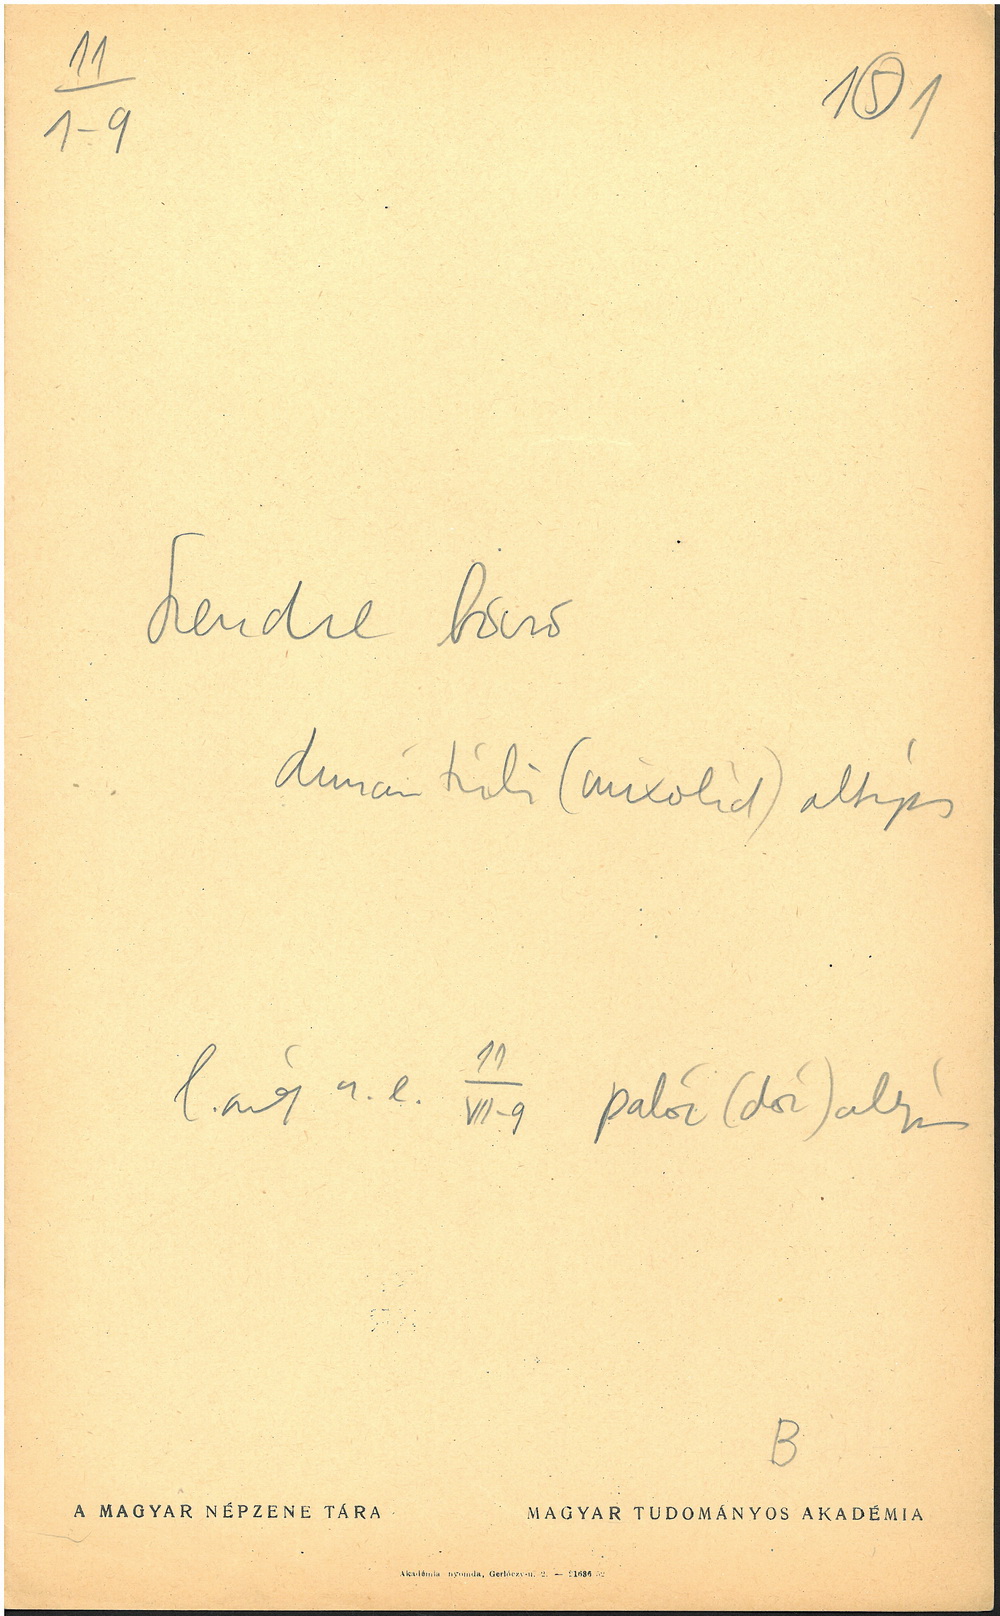 11
1-9
1 5 1
Szendre bíró
dunántúli (mixolid) altípus
l. még u. e. 11
VII-9 palóc (dór) altípus
B
A MAGYAR NÉPZENE TÁRA
MAGYAR TUDOMÁNYOS AKADÉMIA
Akadémia nyomda, Gerlóczy-u. 2. —